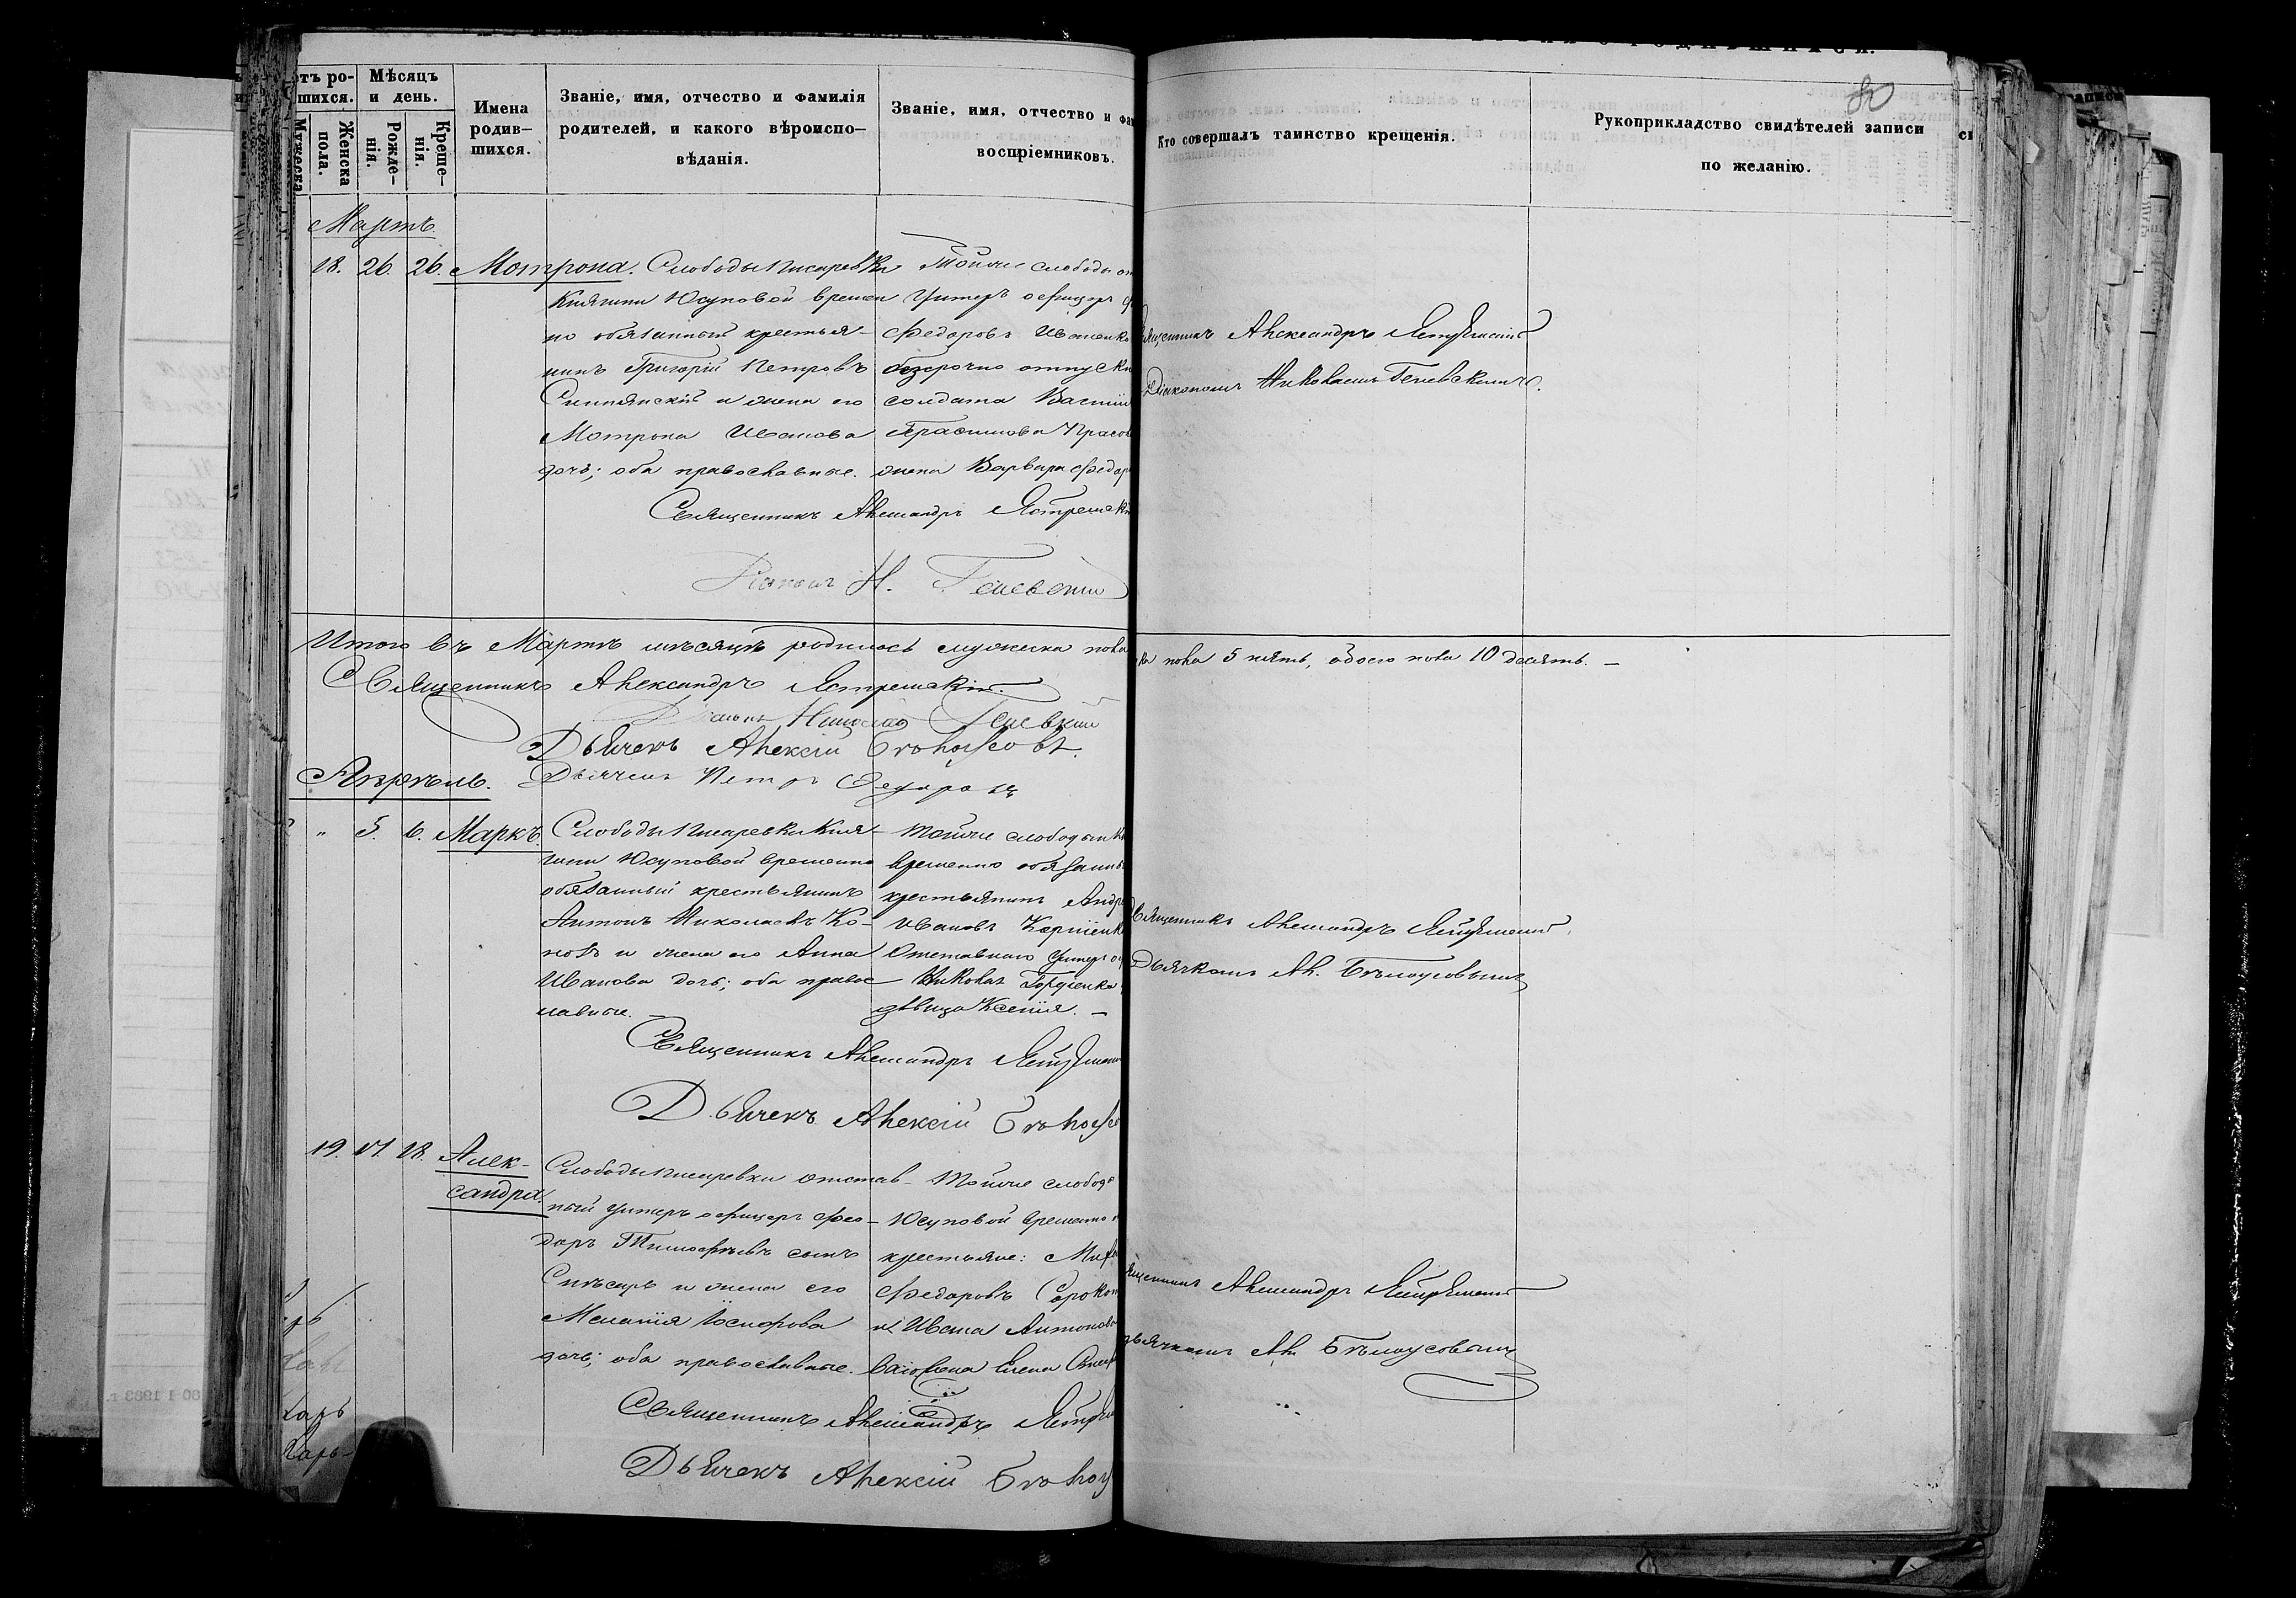 80
отъ ро- Мѣсяцъ
шихся. и день.
Мужеска
Женска пола.
Рожде- нія.
Креще- нія.
Имена родив- шихся.
Званіе, имя, отчество и фамилія
родителей, и какого вѣроиспо-
вѣданія.
Званіе, имя, отчество и фам
воспріемниковъ.
Кто совершалъ таинство крещенія.
Рукоприкладство свидѣтелей записи
по желанію.
Мартъ
18. 26. 26. Мотрона.
Слободы Писаревки
Княгини Юсуповой времен
но обязанный крестья-
нинъ Григорій Петровъ
и жена его
Мотрона Иванова
дочь; оба православные.
Тойже слободы от
Унтеръ офицеръ
Федоровъ
безсрочно отпускн
солдата Васили
Герасимова
жена Варвара Федор
Священникъ Александръ Ястремскій
Діаконъ Н. Геневскій
Священникъ Александръ Ястремскій
Діакономъ Николаемъ Геневскимъ.
Итого въ Мартѣ мѣсяцѣ родилось мужеска пола
ка пола 5 пять, обоего пола 10 десять. —
Священникъ Александръ Ястремскій.
Діаконъ Николай Геневскій
Дьячекъ Алексій Бѣлоусовъ.
Дьячекъ Петръ Федоровъ
Апрѣль.
" 5. 6. Маркъ.
Слободы Писаревки Кня-
гини Юсуповой временно
обязанный крестьянинъ
Антонъ Николаевъ Ко-
новъ и жена его Анна
Иванова дочь; оба правос
лавные. —
Тойже слободы Кн
временно обязанны
крестьянинъ Андре
Ивановъ
Отставнаго Унтеръ оф
Николая Гордіенка
дѣвица Ксенія. —
Священникъ Александръ Ястремскій
Дьячекъ Алексій Бѣлоусо
Священникъ Александръ Ястремскій
Дьячкомъ Ал. Бѣлоусовымъ
19. 17. 18. Алек-
сандра.
Слободы Писаревки отстав-
ный унтеръ офицеръ Фео-
доръ Тимофѣевъ сынъ
Слѣсарь и жена его
Меланія Іосифова
дочь; оба православные.
Тойже слободы
Юсуповой временно о
крестьяне: Миха
Федоровъ Сорокон
и Ивана Антонова
жена Елена
Священникъ Александръ Ястрем
Дьячекъ Алексій Бѣлоу
Священникъ Александръ Ястремскій
дьячкомъ Ал. Бѣлоусовымъ